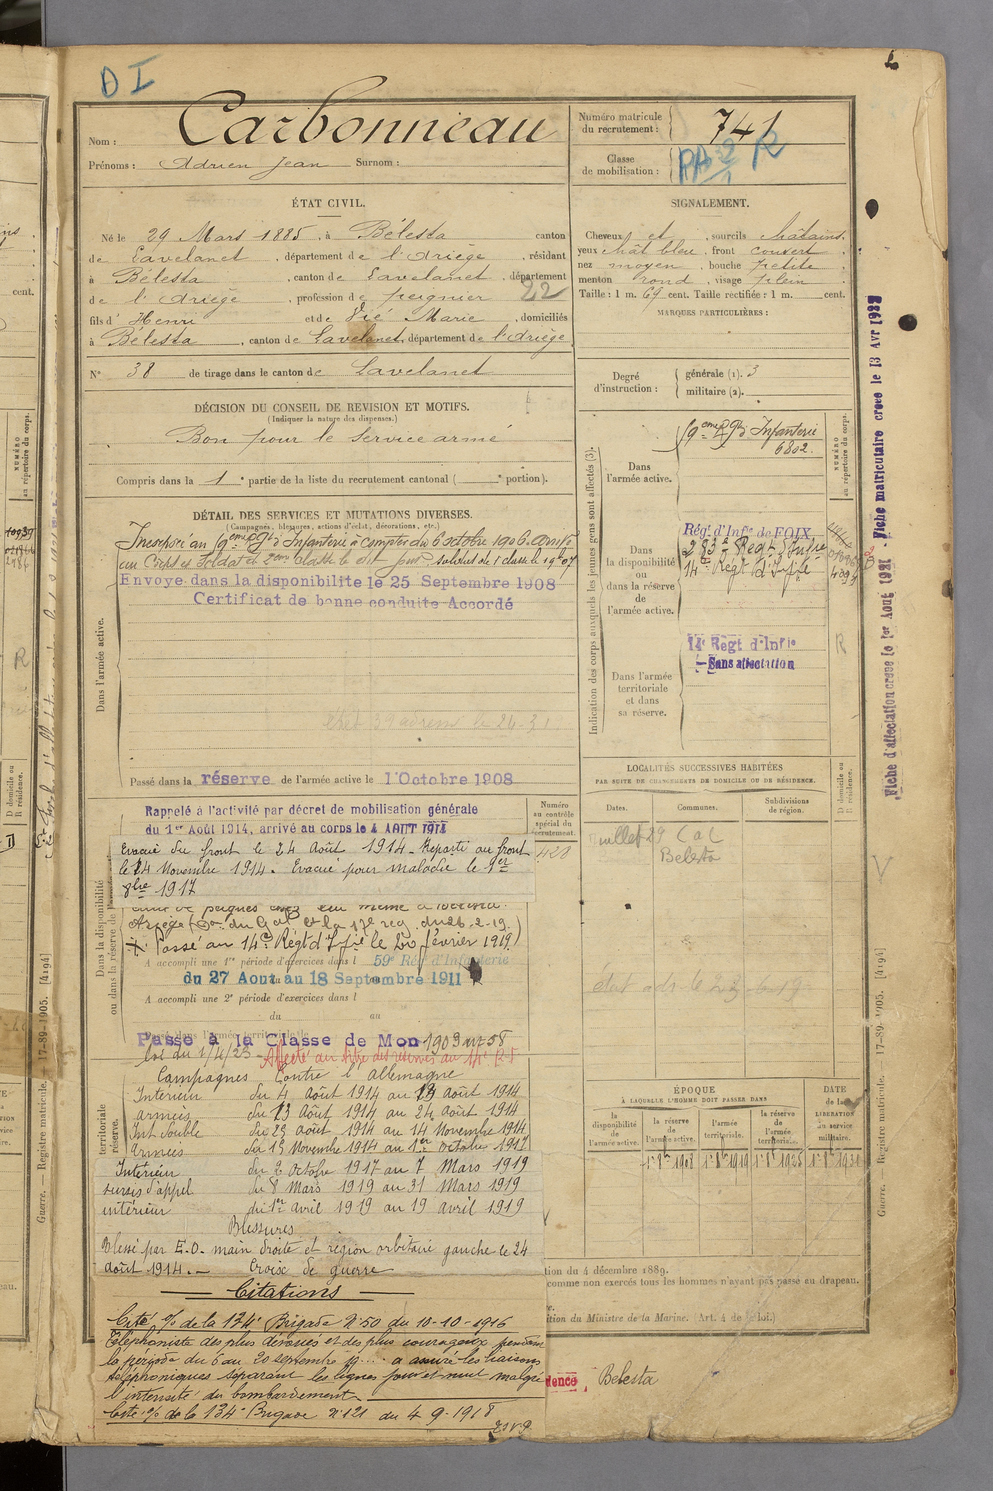 D I
Nom : Carbonneau
Prénoms : Adrien Jean Surnom :
Numéro matricule
du recrutement : 741
Classe
de mobilisation :
R
ÉTAT CIVIL.
Né le 29 Mars 1885, à Bélesta canton
de Lavelanet, département de l'Ariège, résidant
à Bélesta, canton de Lavelanet, département
de l'Ariège, profession de peignier
22
fils d' Henri et de Vié Marie, domiciliés
à Bélesta, canton de Lavelanet, département de l'Ariège
N° 38 de tirage dans le canton de Lavelanet
SIGNALEMENT.
Cheveux et, sourcils châtains.
yeux chât bleu, front couvert,
nez moyen, bouche petite,
menton rond, visage plein.
Taille : 1 m. 69 cent. Taille rectifiée : 1 m. cent.
MARQUES PARTICULIÈRES :
Degré
d'instruction :
générale (1). 3
militaire (2).
DÉCISION DU CONSEIL DE REVISION ET MOTIFS.
(Indiquer la nature des dispenses.)
Bon pour le service armé
Compris dans la 1e partie de la liste du recrutement cantonal ( e portion).
DÉTAIL DES SERVICES ET MUTATIONS DIVERSES.
(Campagnes, blessures, actions d'éclat, décorations, etc.)
Incorporé au 9eme Rgt d'Infanterie à compter du 6 octobre 1906. Arrivé
au Corps et Soldat de 2eme Classe le dit jour. Soldat de 1e classe le
Envoyé dans la disponibilité le 25 Septembre 1908
Certificat de bonne conduite Accordé
Dans l'armée active.
Passé dans la réserve de l'armée active le 1 Octobre 1908
Indication des corps auxquels les jeunes gens sont affectés (3).
NUMÉRO
au répertoire du corps.
Dans
l'armée active.
9eme Rgt d'Infanterie
6802.
Dans
la disponibilité
ou
dans la réserve
de
l'armée active.
Régt d'Infie de FOIX
283e Régt d'Infie
14e Régt d'Infie
Dans l'armée
territoriale
et dans
sa réserve.
14e Régt d'Infie
Sans affectation
R
LOCALITÉS SUCCESSIVES HABITÉES
PAR SUITE DE CHANGEMENTS DE DOMICILE OU DE RÉSIDENCE.
D domicile ou
R résidence.
Dates. Communes. Subdivisions
de région.
Juillet 29
Belesta
Numéro
au contrôle
spécial du
recrutement.
420
Dans la disponibilité
ou dans la réserve de
Rappelé à l'activité par décret de mobilisation générale
du 1er Août 1914, arrivé au corps le 4 AOUT 1914
Evacué du front le 24 Août 1914. Reparti au front
le 14 Novembre 1914. Evacué pour maladie le 1er
8bre 1917
de peignes chez lui même à Bélesta.
Ariège
Passé au 14e Régt d'Infie le 20 février 1919)
A accompli une 1re période d'exercices dans l 59e Rég. d'Infanterie
du 27 Aout au 18 Septembre 1911
A accompli une 2e période d'exercices dans l
du au
Passé à la Classe de Mob 1903 art 58
loi du 1/4/23 - Affecté au titre des réserves au 14e R.I
territoriale
réserve.
Campagnes Contre l'Allemagne
Intérieur du 4 Août 1914 au 13 Août 1914
armées du 13 Août 1914 au 24 Août 1914
Int double du 25 août 1914 au 14 Novembre 1914
Armées du 15 Novembre 1914 au 1er Octobre 1917
Intérieur du 2 Octobre 1917 au 7 Mars 1919
sursis d'appel du 8 Mars 1919 au 31 Mars 1919
intérieur du 1er avril 1919 au 19 avril 1919
Blessures
Blessé par E.O. main droite et région orbitaire gauche le 24
août 1914. — Croix de guerre
— Citations —
Cité o/o de la 134e Brigade N° 50 du 10-10-1916
Téléphoniste des plus dévoués et des plus courageux pendant
la période du 6 au 20 septembre 19... a assuré les liaisons
téléphoniques réparant les lignes jour et nuit malgré
l'intensité du bombardement.
Cité o/o de la 134e Brigade N° 121 du 4-9-1918
T.S.V.P.
ÉPOQUE
À LAQUELLE L'HOMME DOIT PASSER DANS
DATE
de la
LIBÉRATION
du service
militaire.
la
disponibilité
de
l'armée active.
la réserve
de
l'armée active.
l'armée
territoriale.
la réserve
de
l'armée
territoriale.
tion du 4 décembre 1889.
comme non exercés tous les hommes n'ayant pas passé au drapeau.
ition du Ministre de la Marine. (Art. 4 de
dence Belesta
Guerre. Registre matricule. — 17-89-1905. [4194]
Fiche d'affectation créée le 1er Aout 1921 - Fiche matriculaire créée le 13 Avr